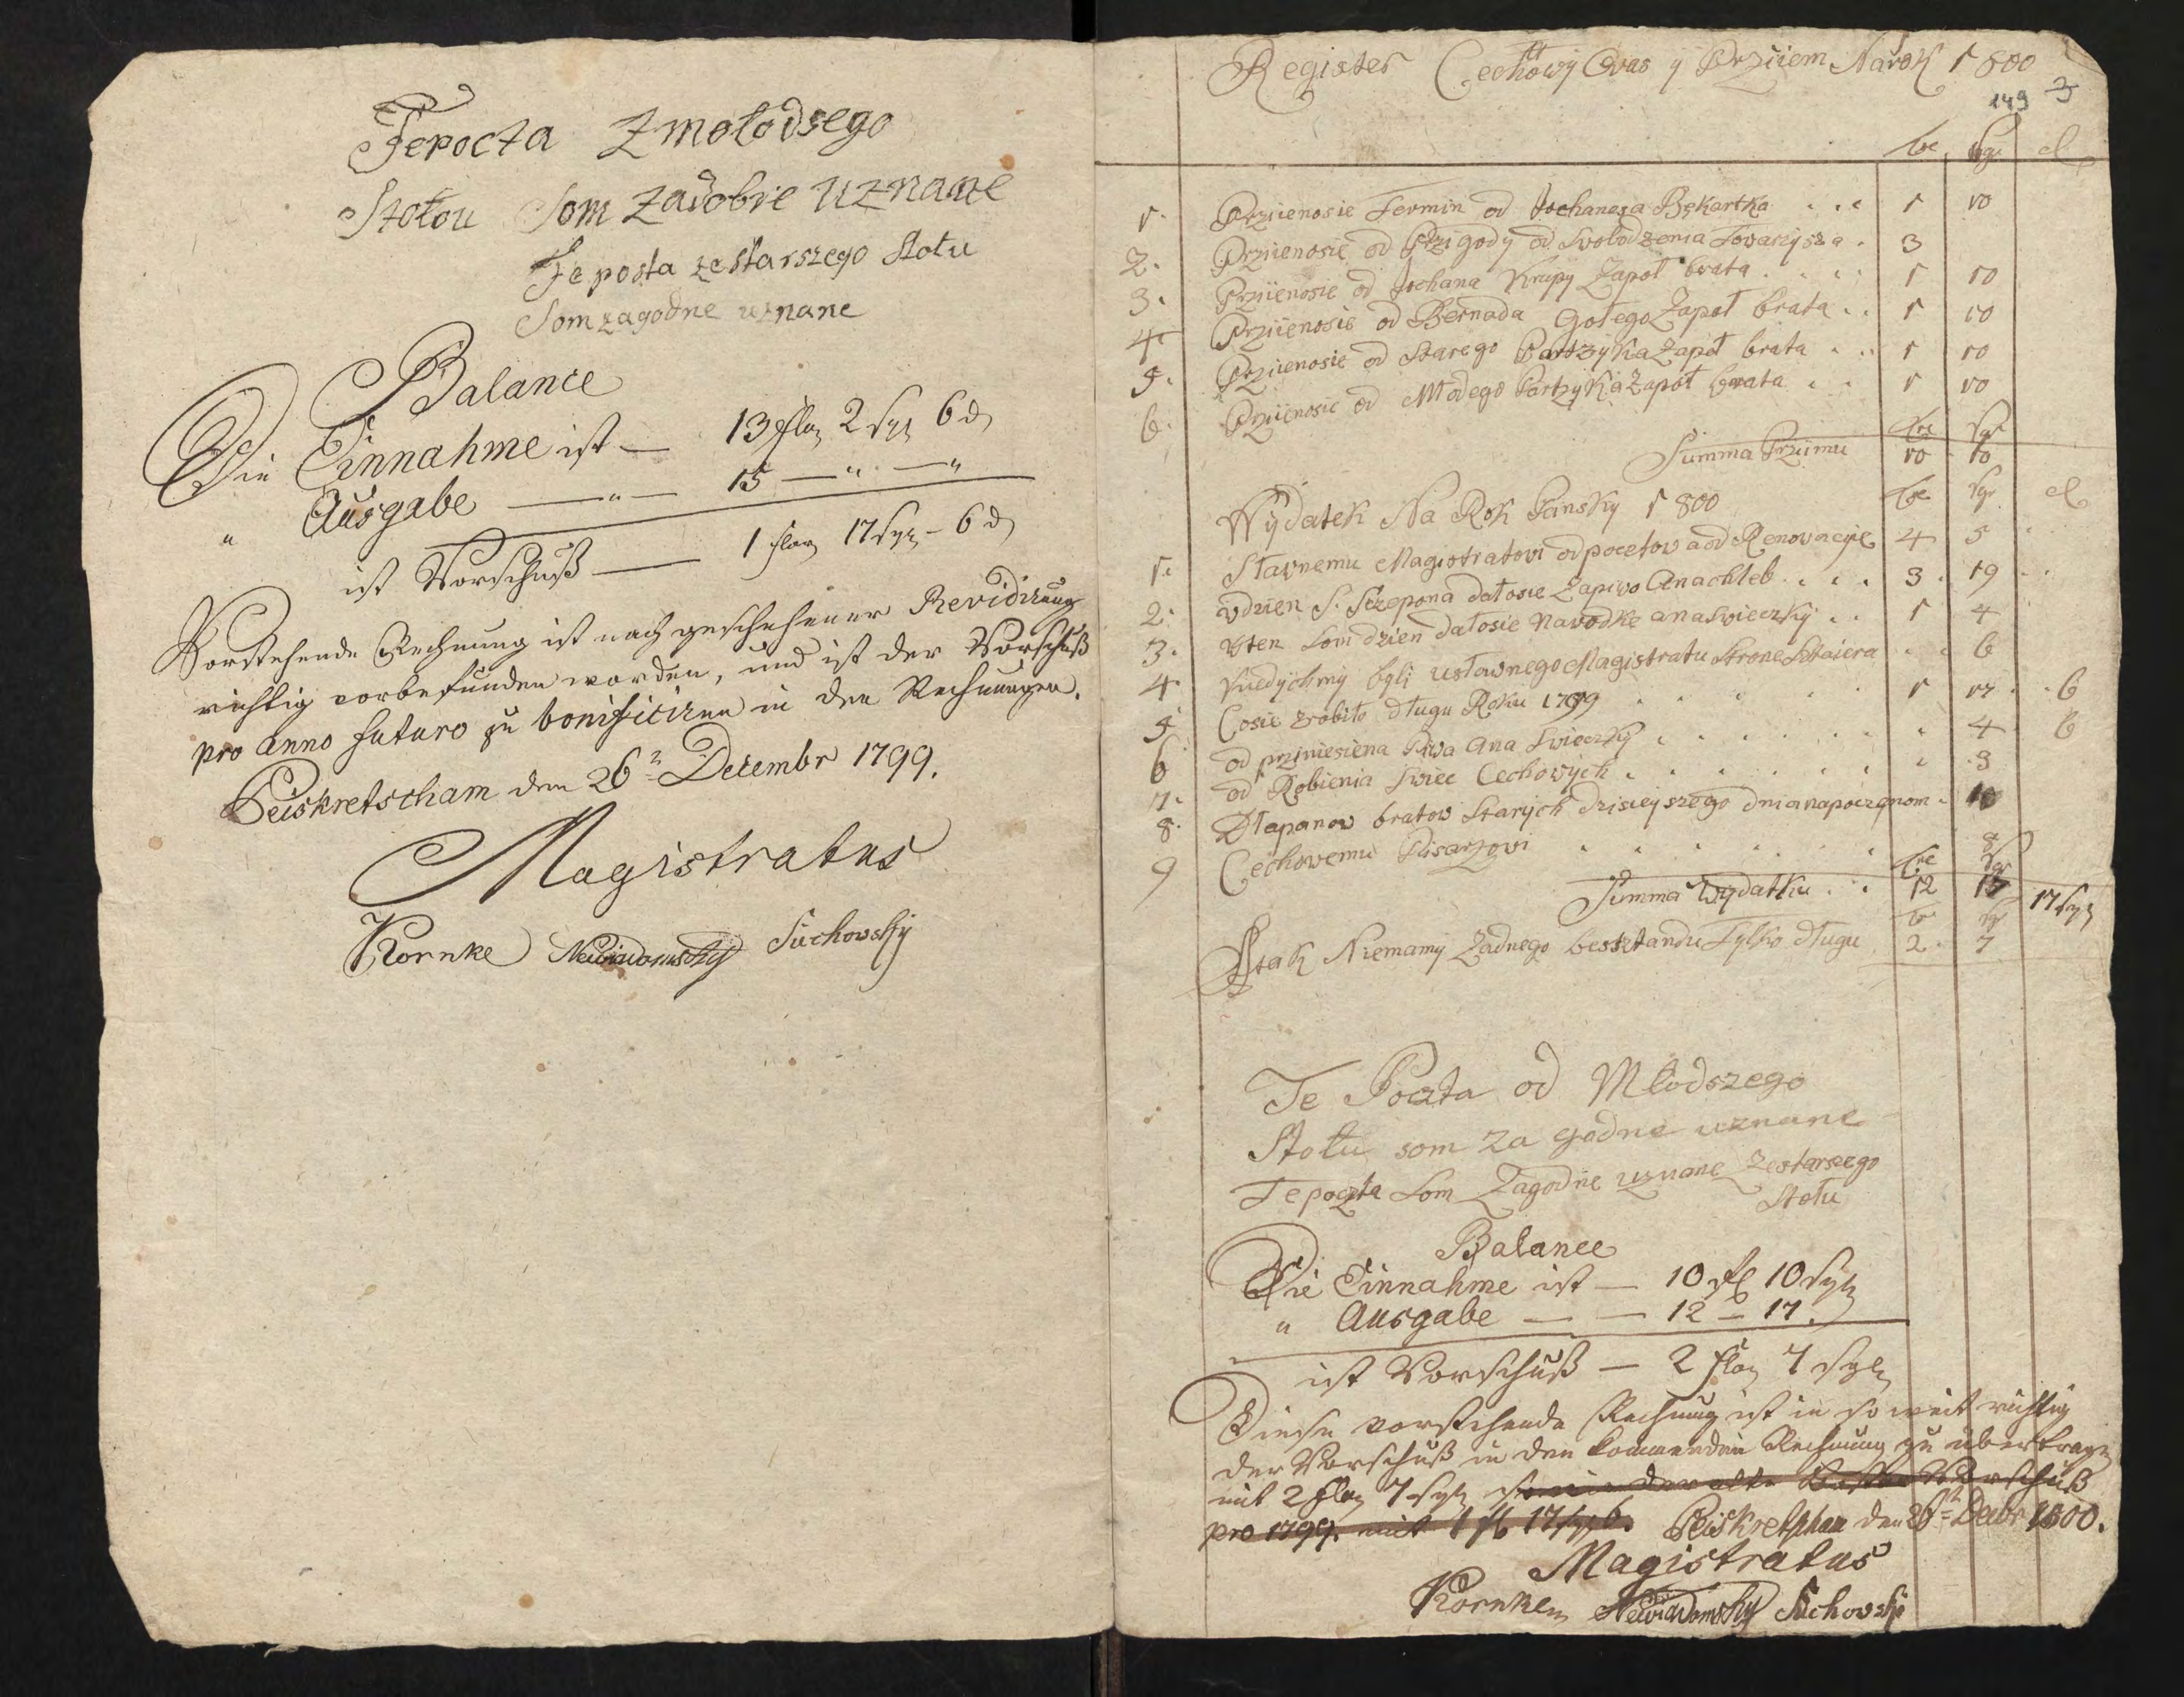 Tepocta Zmołodsego
Stołou Som zadobre uznane
Te posta ze starszego stołu
Som zagodne uznane
Balance
Die Einnahme ist — 13 flor 2 sgr 6 d
" Ausgabe — " — 15 — " — "
ist Vorschuß — 1 flor 17 sgr - 6 d
Vorstehende Rechnung ist nach geschehener Revidirung
richtig vorbefunden worden, und ist der Vorschuß
pro anno futuro zu bonificiren in den Rechnungen.
Peiskretscham den 26t Decembr 1799.
Magistratus
Kornke Suchovsky
Register Cechowÿ Oras ÿ Przÿiem Na rok 1800
149
sgr d
1. Przÿienosie Termin od Jochanesa Bękartka . . . 1 10
2. Przÿienosie od Przigodÿ od Svobodzenia Tovarzÿsza . 3
3. Przÿienosie od Jochana Krupÿ Zapoł brata . . . . 1 10
4. Przÿienosie od Bernada Gołego Zapoł brata . . 1 10
5. Przÿienosie od Starego Partzÿka Zapoł brata . . . 1 10
6. Przÿienosie od Młodego Partzÿka Zapoł brata . . 1 10
Summa Przÿimu 10 10
Wÿdatek Na Rok Panskÿ 1800 sgr d
1. Stavnemu Magistratovi odpocetov a od Renovacÿie 4 5
2. vdzien S. Sczepona dałosie Zapivo Anachleb . . . . 3 . 19
3. vten som dzien dałosie navodke anasvieczkÿ . . 1 4
4. Kiedÿchmÿ bÿli usławnego Magistratu Strone . . 6
5. Cosie zrobiło długu Roku 1799 . . . . 1 17 . 6
6. od przÿniesiena Piva Ana Svieczkÿ . . . . . . 4 6
7. od Robienia Sviec Cechovÿch . . . . . . . 3
8. Dlapanov bratov Starÿch dzisieÿszego dnia napoczęnom . 10
9 Cechovemu Pisarzovi . . . . . . 8
Summa Wÿdatku . . 12 17 17 sgr
Atak Niemamÿ Zadnego besstandu Tÿlko długu 2 . 7
Te Poczta od Młodszego
Stołu som za godne uznane
Te poczta som Zagodne uznane Zestarsego
Stołu
Balance
Die Einnahme ist — 10 fl 10 sgr
" Ausgabe — — 12 — 17.
ist Vorschuß — 2 flor 7 sgr
Diese vorstehende Rechnung ist in so weit richtig
der Vorschuß in den kommenden Rechnung zu übertragen
mit 2 flor 7 sgr so wie der alte Vorschuß
pro 1799. mit 1 fl 17 sgr 6. Peiskretscham den 26t Decbr 1800.
Magistratus
Kornke Suchovsky